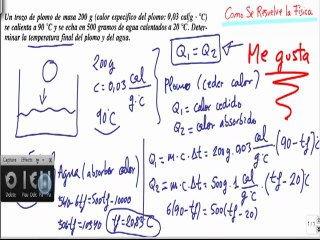 Un trozo de plomo de masa 200 g (calor específico del plomo: 0,03 cal/g · °C)
se calienta a 90 °C y se echa en 500 gramos de agua calentados a 20 °C. Deter-
minar la temperatura final del plomo y del agua.
Como Se Resuelve la Física
Q₁ = Q₂
Me gusta
200g
c = 0,03 cal/g·°C
90°C
Plomo (ceder calor)
Q₁ = calor cedido
Q₂ = calor absorbido
Agua (absorber calor)
Q₁ = m·c·Δt = 200g·0,03 cal/g·°C·(90-tf)
Q₂ = m·c·Δt = 500g·1 cal/g·°C·(tf-20)°C
6(90-tf) = 500(tf-20)
540-6tf=500tf-10000
506tf=10540
tf=20,83°C